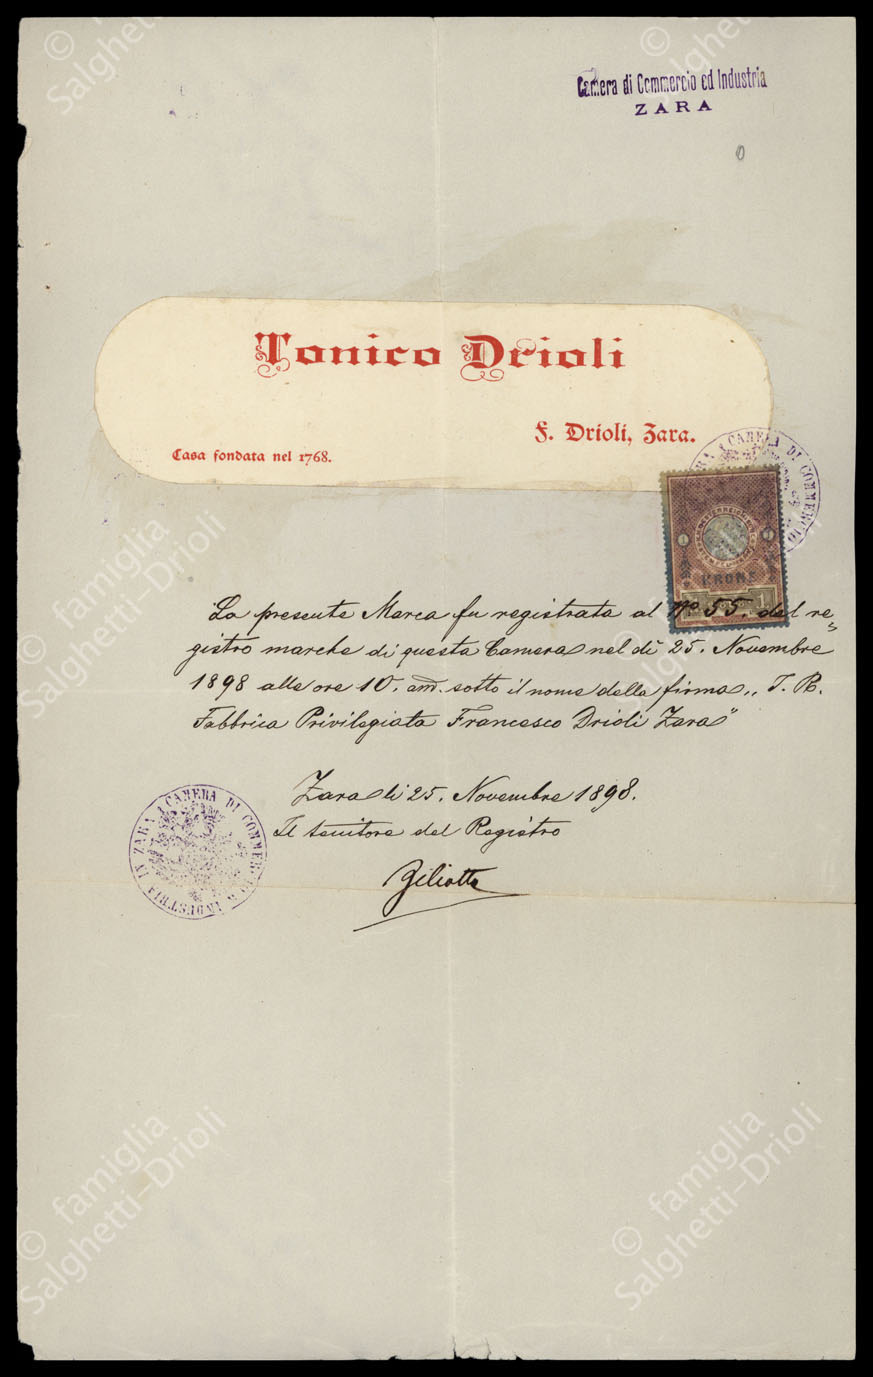 Camera di Commercio ed Industria
ZARA
0
Tonico Drioli
F. Drioli, Zara.
Casa fondata nel 1768.
CAMERA DI COMMERCIO
ZARA
1 1
KRONE
1
La presente Marca fu registrata al Nº 55. del re=
gistro marche di questa Camera nel dì 25. Novembre
1898 alle ore 10. am. sotto il nome della firma „I. R.
Fabbrica Privilegiata Francesco Drioli Zara"
Zara li 25. Novembre 1898.
Il tenitore del Registro
Ziliotto
CAMERA DI COMMERCIO & INDUSTRIA IN ZARA
© famiglia
Salghetti-Drioli
© famiglia
Salghetti-Drioli
© famiglia
Salghetti-Drioli
© famiglia
Salghetti-Drioli
© Salghetti-Drioli
© Salghetti-Drioli